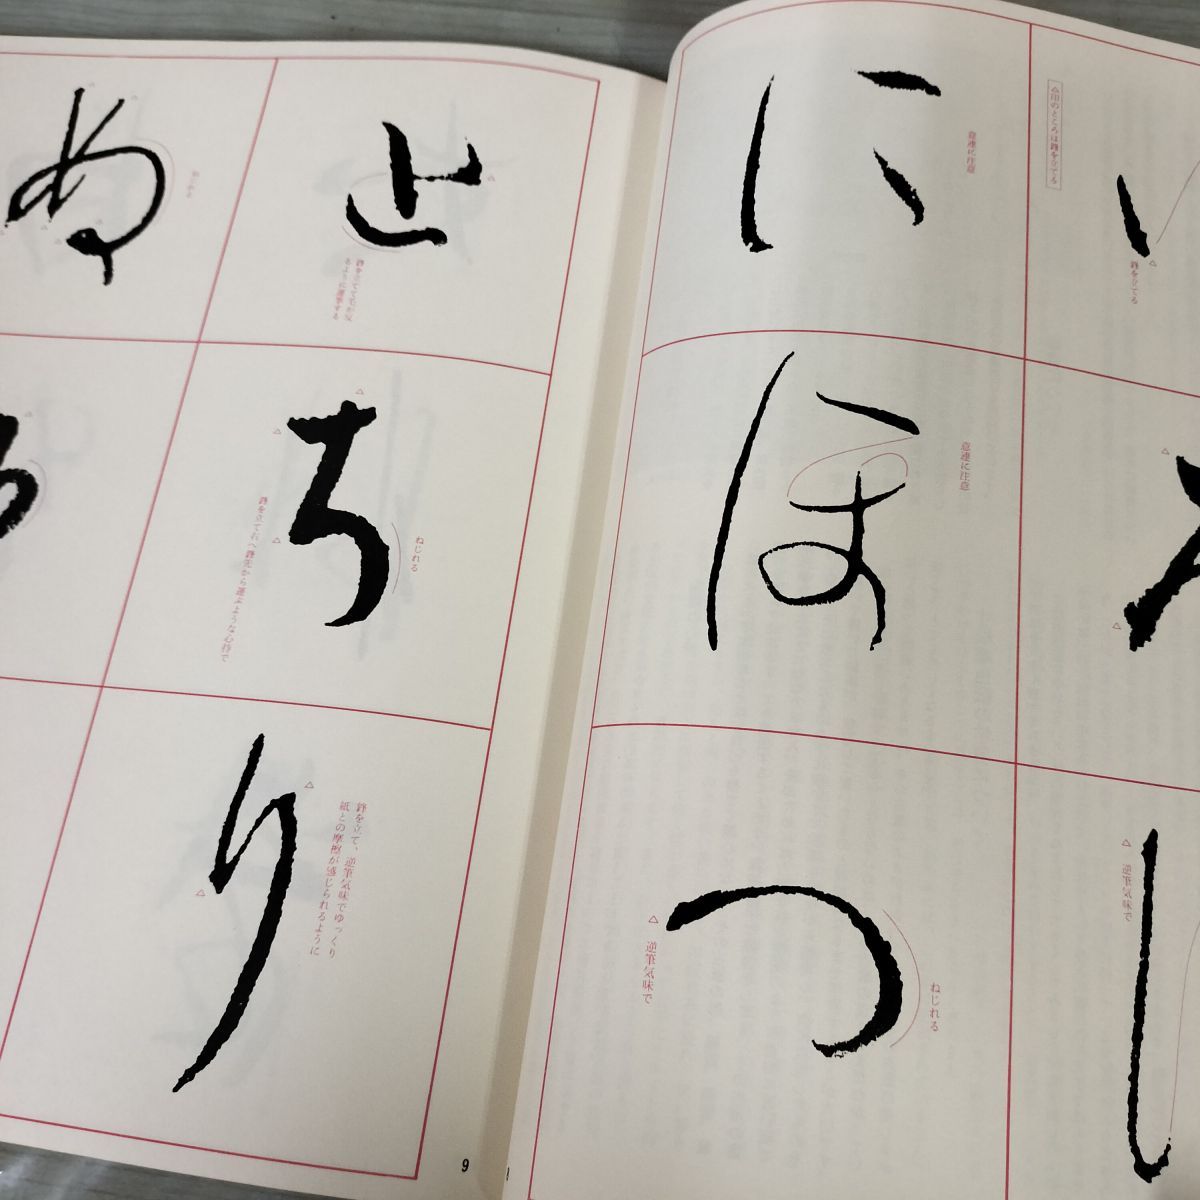 △印のところは鋒を立てる
い
△
鋒を立てる
△
△
△
逆筆気味で
し
に
意連に注意
ほ
意連に注意
つ
ねじれる
△
逆筆気味で
と
△
鋒を立てて毛が反
るように運筆する
ち
△
△
△
ねじれる
鋒を立て右へ鋒先から運ぶような心持で
り
△
△
鋒を立て、逆筆気味でゆっくり
紙との摩擦が感じられるように
ぬ
9